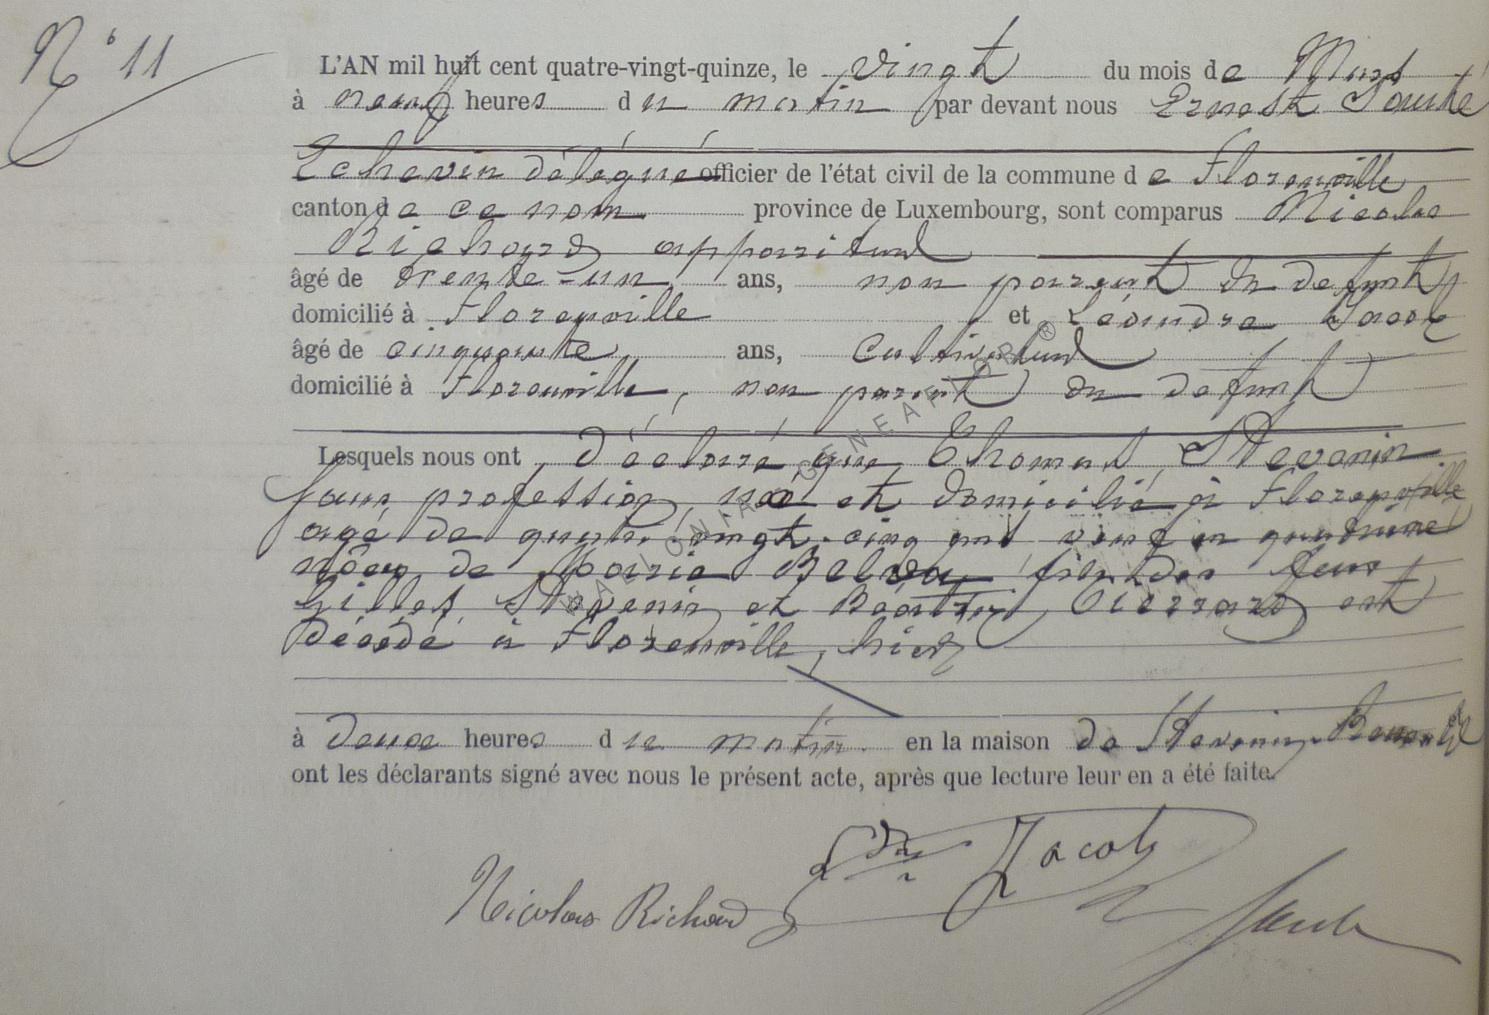 N° 11
L'AN mil huit cent quatre-vingt-quinze, le vingt du mois de Mars
à neuf heures du matin par devant nous Ernest
Echevin délégué officier de l'état civil de la commune de Florenville
canton de ce nom province de Luxembourg, sont comparus Nicolas
Richard appariteur
âgé de trente-un ans, non parent du defunt
domicilié à Florenville et Léandre Jacob
âgé de cinquante ans, Cultivateur
domicilié à Florenville, non parent du defunt
Lesquels nous ont déclaré que Thomas Stevenin
sans profession, né et domicilié à Florenville
agé de quatre vingt cinq ans veuf en
nôces de Marie fils des feus
Gilles Stevenin et Béatrix Pierrard est
décédé à Florenville, hier
à deux heures du matin en la maison de Stevenin
ont les déclarants signé avec nous le présent acte, après que lecture leur en a été faite.
Jacob
Nicolas Richard
WALLONIA GENEAFLOR ®